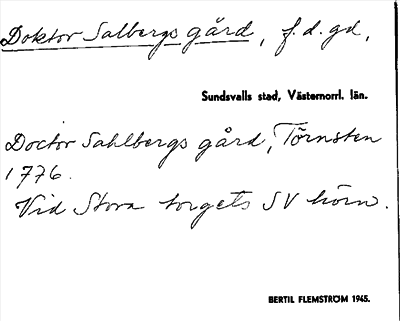 Doktor Salbergs gård, f.d. gd,
Sundsvalls stad, Västernorrl. län.
Doctor Sahlbergs gård, Törnsten
1776.
Vid Stora torgets SV hörn.
BERTIL FLEMSTRÖM 1945.